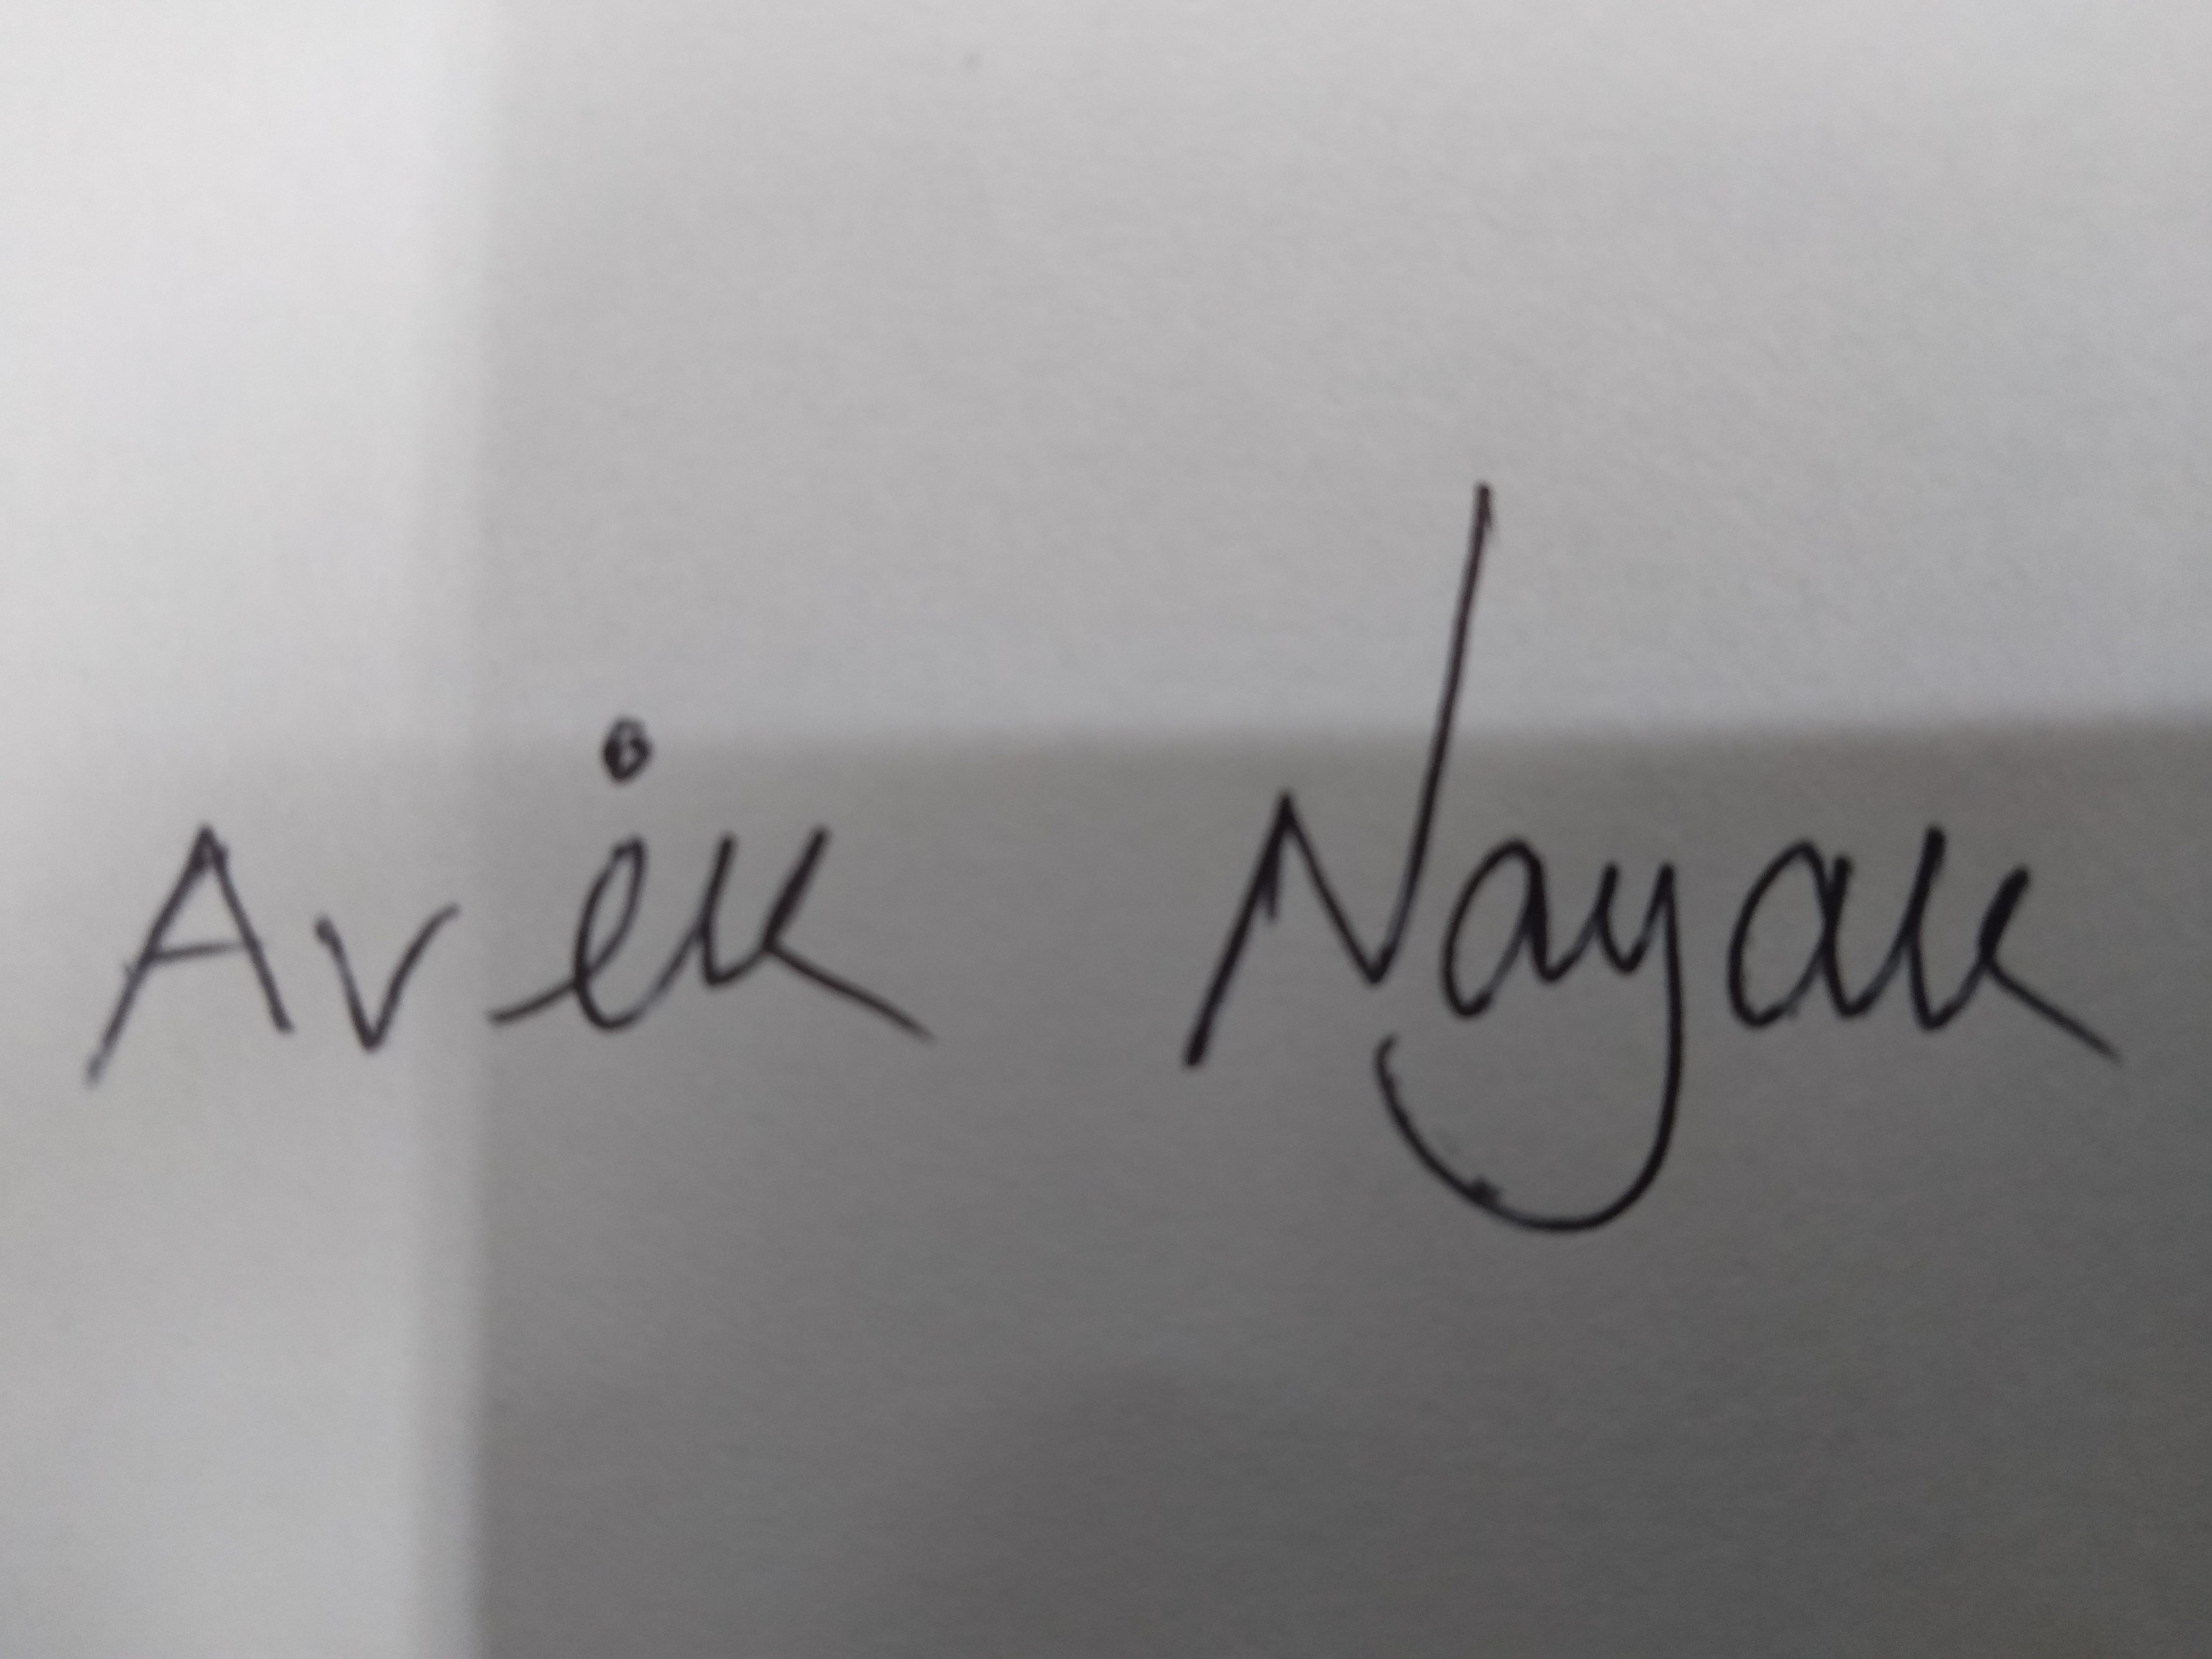 Avik Nayak